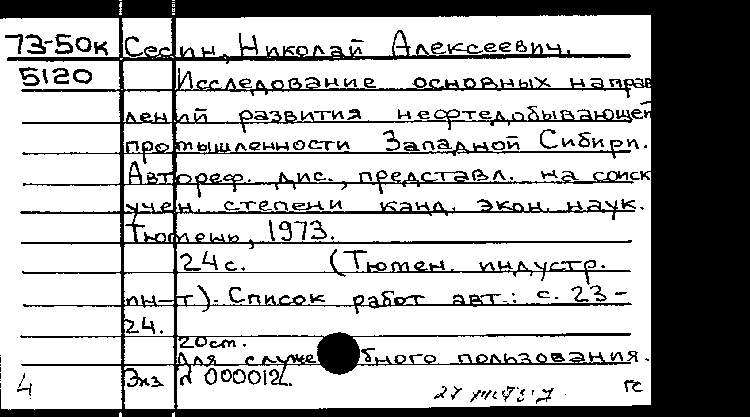 73-50к Сесин, Николай Алексеевич.
5120 Исследование основных направ
лений развития нефтедобывающей
промышленности Западной Сибири.
Автореф. дис., представл. на соиск
учен. степени канд. экон. наук.
Тюмень, 1973.
24с. (Тюмен. индустр.
ин-т). Список работ авт.: с. 23-
24.
20см.
Для служебного пользования.
4 Экз № 000012. гс